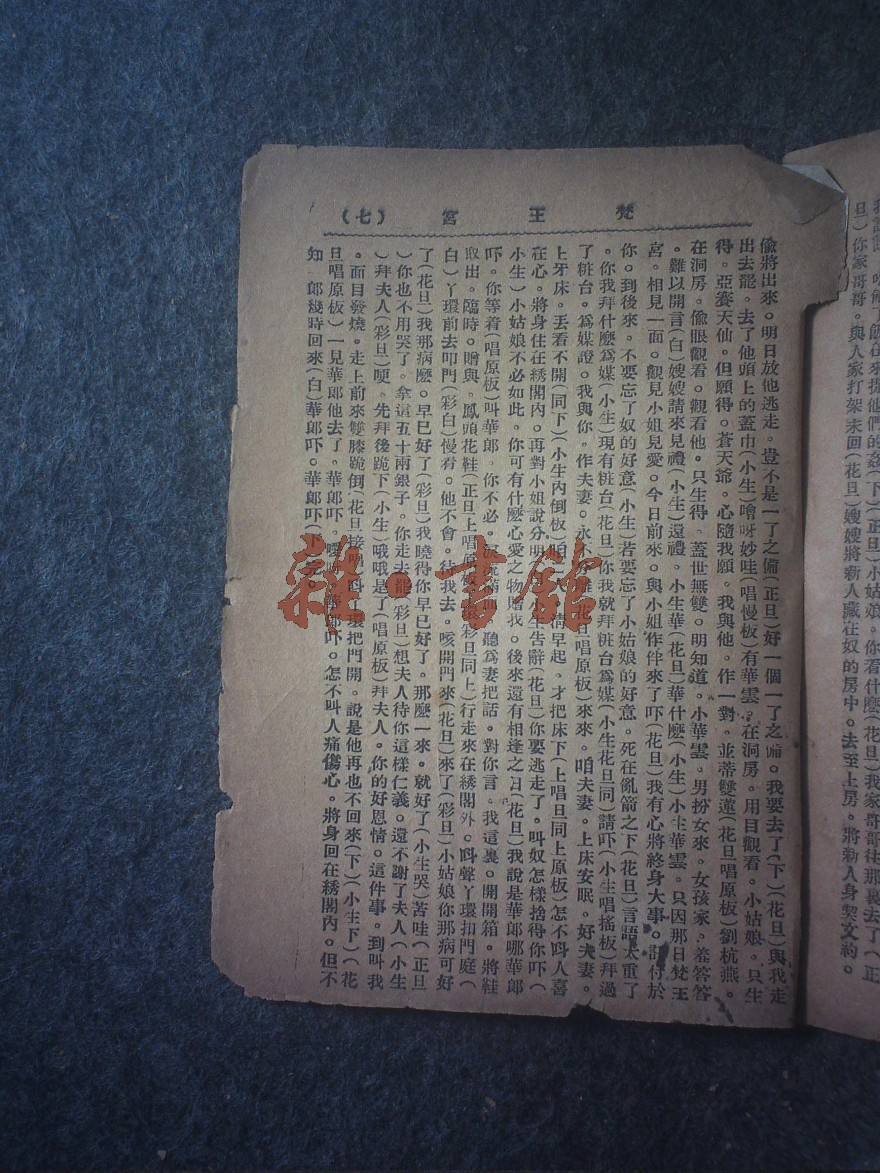 梵王宮 （七）
偷將出來。明日放他逃走。豈不是一了之備（正旦）好一個一了之備。我要去了（下）（花旦）與我走
出去罷。去了他頭上的蓋巾（小生）噲呀妙哇（唱慢板）有華雲。在洞房。用目觀看。小姑娘。只生
得。亞賽天仙。但願得。蒼天爺。心隨我願。我與他。作一對。並蒂雙蓮（花旦唱原板）劉杭燕。
在洞房。偷眼觀看。觀看他。只生得。蓋世無雙。明知道。小華雲。男扮女來。女孩家。羞答答
。難以開言（白）嫂嫂請來見禮（小生）還禮。小生華（花旦）華什麽（小生）小生華雲。只因那日梵王
宮。相見一面。觀見小姐見愛。今日前來。與小姐作伴來了吓（花旦）我有心將終身大事。付於
你。到後來。不要忘了奴的好意（小生）若要忘了小姑娘的好意。死在亂箭之下（花旦）言語太重了
。你我拜什麽爲媒（小生）現有粧台（花旦）你我就拜粧台爲媒（小生花旦同）請吓（小生唱搖板）拜過
了粧台。爲媒證。我與你。作夫妻。永不分離（花旦唱原板）來來。咱夫妻。上床安眠。好夫妻。
上牙床。丟看不開（同下）（小生內倒板）清早起。才把床下（上唱旦同上原板）怎不呌人喜
在心。將身住在綉閣內。再對小姐說分明 小生告辭（花旦）你要逃走了。呌奴怎樣捨得你吓（
小生）小姑娘不必如此。你可有什麽心愛之物贈我。後來還有相逢之日（花旦）我說是華郎哪華郎
吓。你等着（唱原板）叫華郎。你不必。聽爲妻把話。對你言。我這裏。開開箱。將鞋
取出。臨時。贈與。鳳頭花鞋（正旦上唱原 彩旦同上）行走來在綉閣外。呌聲丫環扣門庭（
白）丫環前去叩門（彩白）慢看。他不會。待我去。咳開門來（花旦）來了（彩旦）小姑娘你那病可好
了（花旦）我那病麽。早已好了（彩旦）我曉得你早已好了。那麽一來。就好了（小生哭）苦哇（正旦
）你也不用哭了。拿這五十兩銀子。你走去罷（彩旦）想夫人待你這樣仁義。還不謝了夫人（小生
）拜夫人（彩旦）哽。先拜後跪下（小生）哦哦是了（唱原板）拜夫人。你的好恩情。這件事。到叫我
。面目發燒。走上前來雙膝跪倒（花旦接唱）呌丫環把門開。說是他再也不回來（下）（小生下）（花
旦唱原板）一見華郎他去了。華郎吓。噯呀。華郎吓。怎不叫人痛傷心。將身回在綉閣內。但不
知 郎幾時回來（白）華郎吓。華郎吓（下）完。
旦）你家哥哥。與人家打架未回（花旦）嫂嫂將新人藏在奴的房中。去至上房。將勒人身契文約。
雜·書館